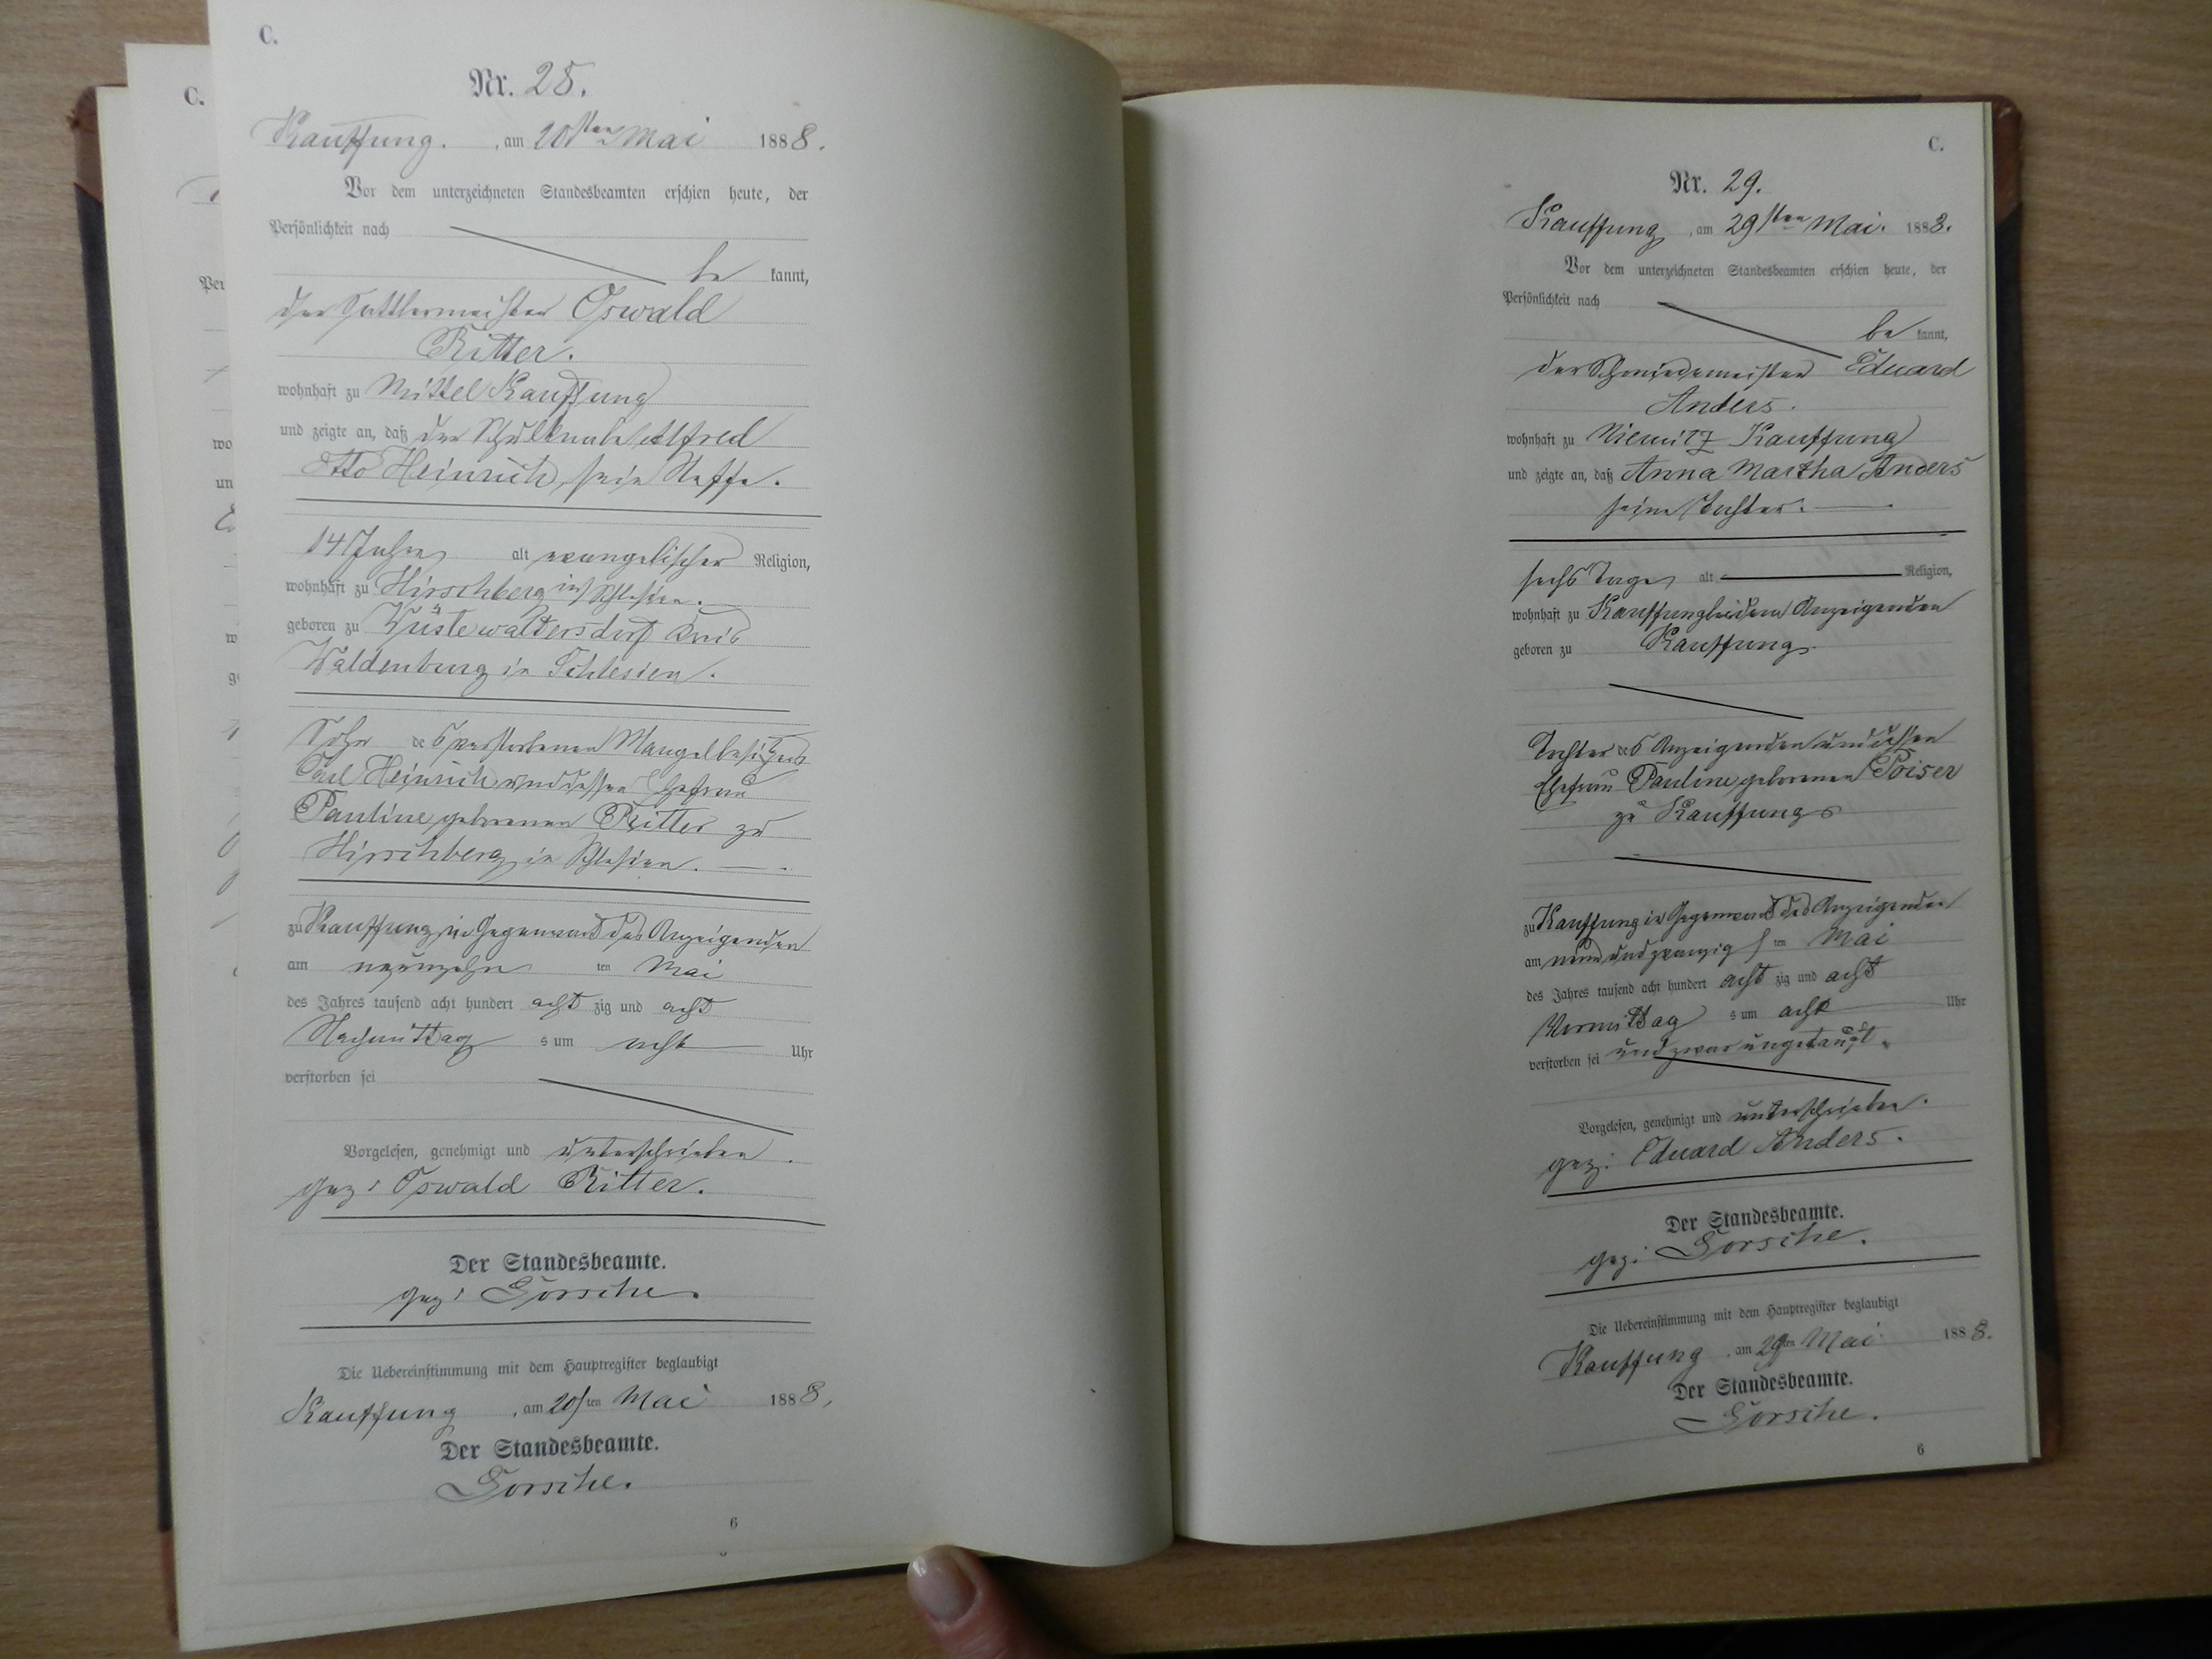 C.
Nr. 28.
Kauffung. , am 20sten Mai 1888.
Vor dem unterzeichneten Standesbeamten erschien heute, der
Persönlichkeit nach
be kannt,
der Sattlermeister Oswald
Ritter.
wohnhaft zu Mittel Kauffung
und zeigte an, daß der Schulknabe Alfred
Otto Heinrich, sein Neffe.
14 Jahre alt evangelischer Religion,
wohnhaft zu Hirschberg in Schlesien.
geboren zu Wüstewaltersdorf Kreis
Waldenburg in Schlesien.
Sohn des verstorbenen Mangelbesitzers
Carl Heinrich und dessen Ehefrau
Pauline geborenen Ritter zu
Hirschberg in Schlesien.
zu Kauffung in Gegenwart des Anzeigenden
am neunzehn ten Mai
des Jahres tausend acht hundert acht zig und acht
Nachmittag s um acht Uhr
verstorben sei
Vorgelesen, genehmigt und unterschrieben.
gez: Oswald Ritter.
Der Standesbeamte.
gez: Gorsche.
Die Uebereinstimmung mit dem Hauptregister beglaubigt
Kauffung , am 20sten Mai 1888,
Der Standesbeamte.
Gorsche.
6
C.
Per
wo
un
w
g
C.
Nr. 29.
Kauffung , am 29sten Mai. 1888.
Vor dem unterzeichneten Standesbeamten erschien heute, der
Persönlichkeit nach
be kannt,
der Schmiedemeister Eduard
Anders.
wohnhaft zu Niemitz Kauffung
und zeigte an, daß Anna Martha Anders
seine Tochter.
sechs Tage alt Religion,
wohnhaft zu Kauffung bei dem Anzeigenden
geboren zu Kauffung.
Tochter des Anzeigenden und dessen
Ehefrau Pauline geborenen Poiser
zu Kauffung
zu Kauffung in Gegenwart des Anzeigenden
am neunundzwanzigs ten Mai
des Jahres tausend acht hundert acht zig und acht
Vormittag s um acht Uhr
verstorben sei und zwar ungetauft.
Vorgelesen, genehmigt und unterschrieben.
gez: Eduard Anders.
Der Standesbeamte.
gez: Gorsche.
Die Uebereinstimmung mit dem Hauptregister beglaubigt
Kauffung , am 29ten Mai 1888.
Der Standesbeamte.
Gorsche.
6